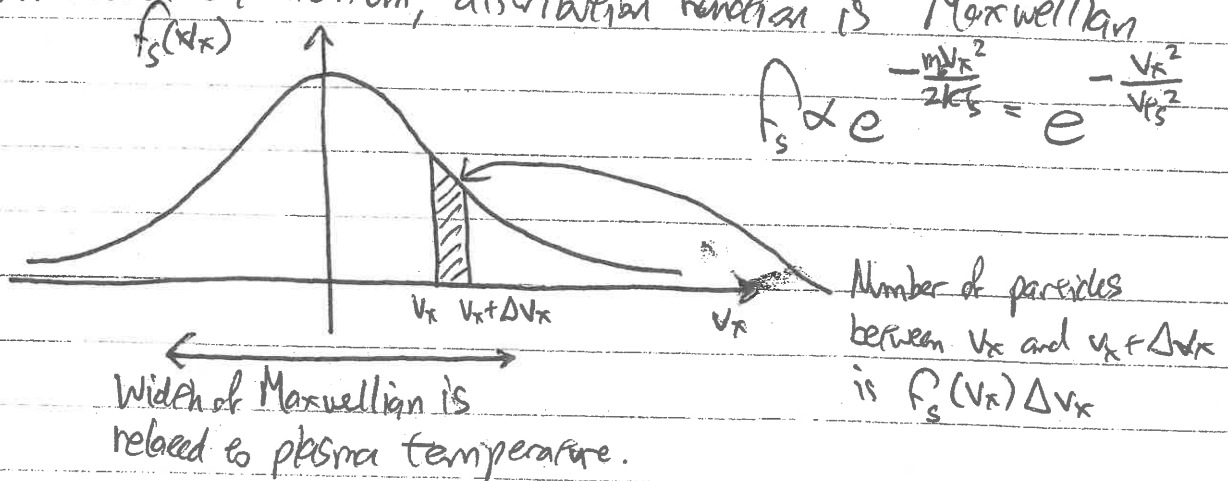 distribution function is Maxwellian
f_s(v_x)
f_s ∝ e^{-\frac{m_s v_x^2}{2kT_s}} = e^{-\frac{v_x^2}{v_{ts}^2}}
v_x v_x+Δv_x v_x
Number of particles
between v_x and v_x+Δv_x
is f_s(v_x)Δv_x
Width of Maxwellian is
related to plasma temperature.